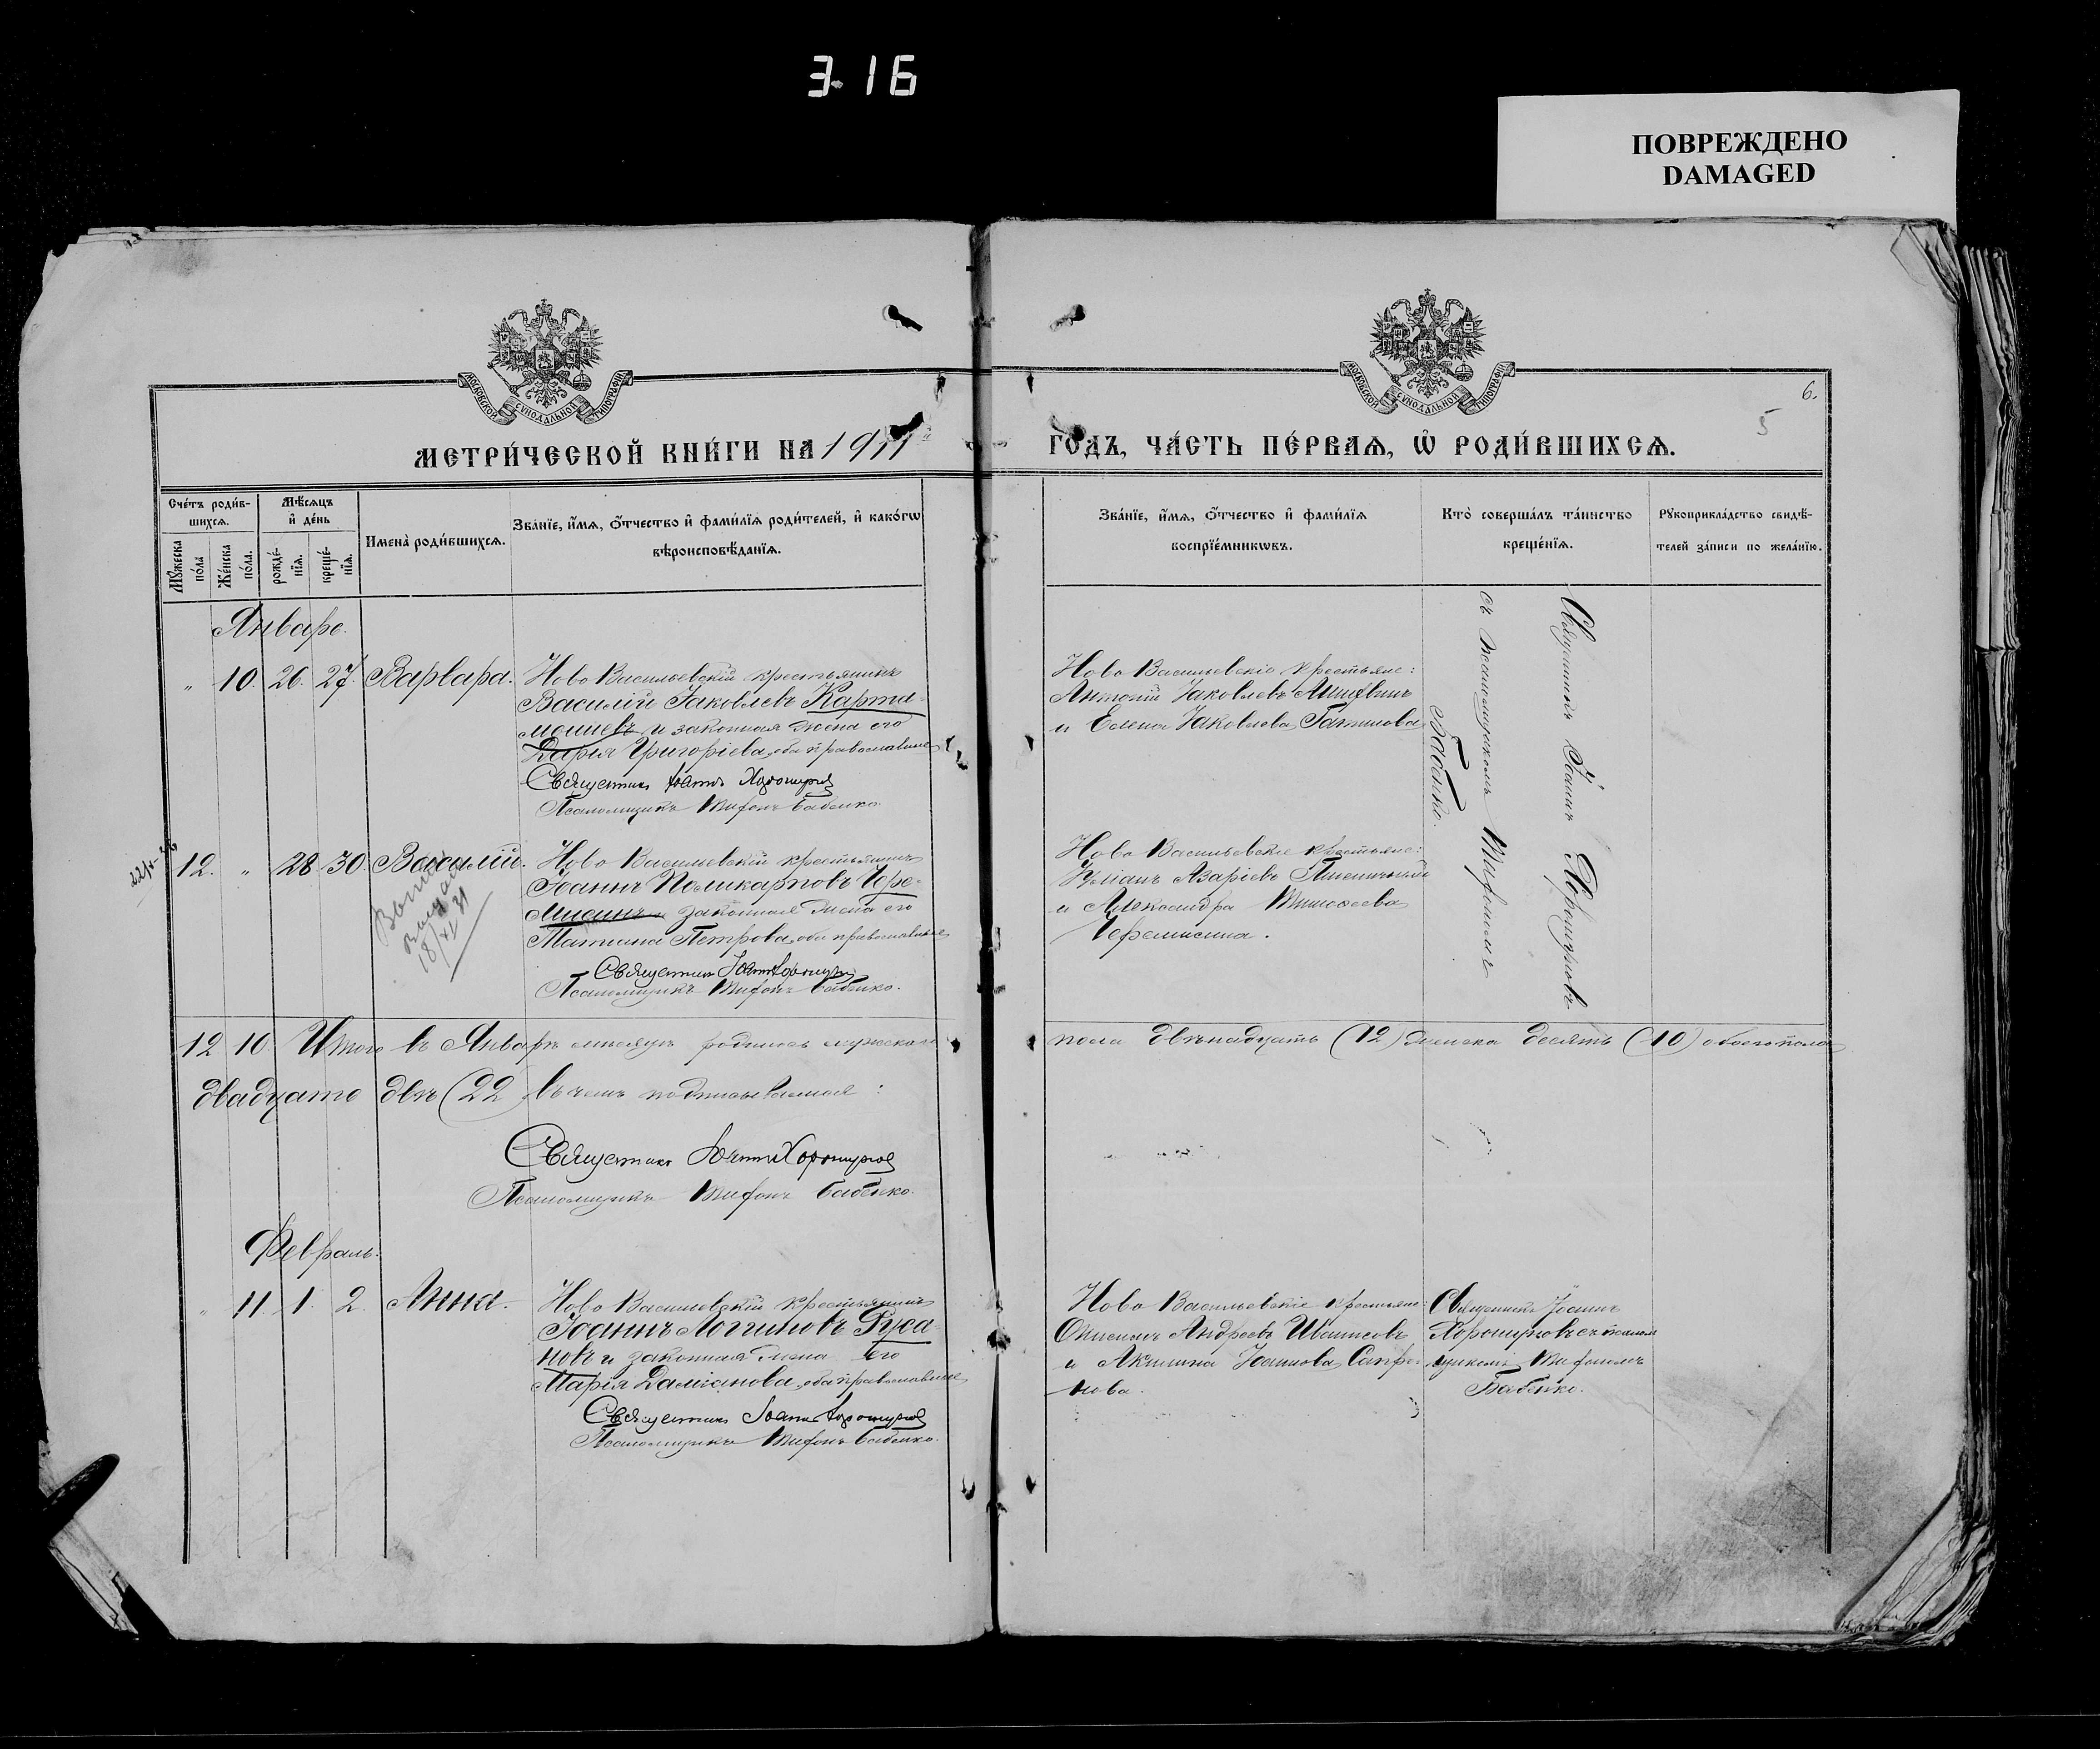 3 16
ПОВРЕЖДЕНО
DAMAGED
МОСКОВСКОЙ СѴНОДАЛЬНОЙ ТИПОГРАФІИ
МОСКОВСКОЙ СѴНОДАЛЬНОЙ ТИПОГРАФІИ
6.
5
МЕТРИ́ЧЕСКОЙ КНИ́ГИ НА 1911
ГОДЪ, ЧА́СТЬ ПЕ́РВАѦ, Ѡ РОДИ́ВШИХСѦ.
Сче́тъ роди́в-
шихсѧ.
Мѣ́сѧцъ
и де́нь
Мꙋ́жеска
по́ла
Же́нска
по́ла.
рожде́-
нїѧ.
креще́-
нїѧ.
Имена̀ роди́вшихсѧ.
Зва́нїе, и́мѧ, ѻ́тчество и фами́лїѧ роди́телей, и како́гѡ
вѣроисповѣ́данїѧ.
Зва́нїе, и́мѧ, ѻ́тчество и фами́лїѧ
воспрїе́мникѡвъ.
Кто̀ соверша́лъ та́инство
креще́нїѧ.
Рꙋкоприкла́дство свидѣ́-
телей за́писи по жела́нїю.
Январь.
" 10. 26. 27. Варвара.
Ново Васильевскій крестьянинъ
Василій Іаковлевъ Карта-
мышевъ и законная жена его
Дарія Григоріева, оба православные
Священникъ Іоаннъ Хорошунов
Псаломщикъ Тифонъ Бабенко.
Ново Васильевскіе крестьяне:
Антоній Іаковлевъ
и Елена Іаковлева
Священникъ Іоаннъ Хорошуновъ
съ псаломщикомъ Тифономъ
Бабенко.
12. " 28 30. Василій.
18/XI 31
Ново Васильевскій крестьянинъ
Іоаннъ Поликарповъ Чере-
мисинъ и законная жена его
Матрона Петрова, оба православные
Священник Іоанн Хорошунов
Псаломщикъ Тифонъ Бабенко.
Ново Васильевскіе крестьяне:
Азаріевъ Пшеничный
и Александра Тимофеева
Черемисина.
12 10 Итого въ Январѣ мѣсяцѣ родилось мужеска
пола двѣнадцать (12) женска десять (10) обоего пола
двадцать двѣ (22) въ чемъ подписываемся:
Священник Іоанн Хорошунов
Псаломщикъ Тифонъ Бабенко.
Февраль.
" 11. 1. 2. Анна.
Ново Васильевскій крестьянинъ
Іоаннъ Логгиновъ Руса-
новъ и законная жена его
Марія Даміанова, оба православные
Священникъ Іоаннъ Хорошунов
Псаломщикъ Тифонъ Бабенко.
Ново Васильевскіе крестьяне:
Андреевъ
и Акилина Іоаннова Сапро-
нова.
Священникъ Іоаннъ
Хорошуновъ съ псалом-
щикомъ Тифономъ
Бабенко.